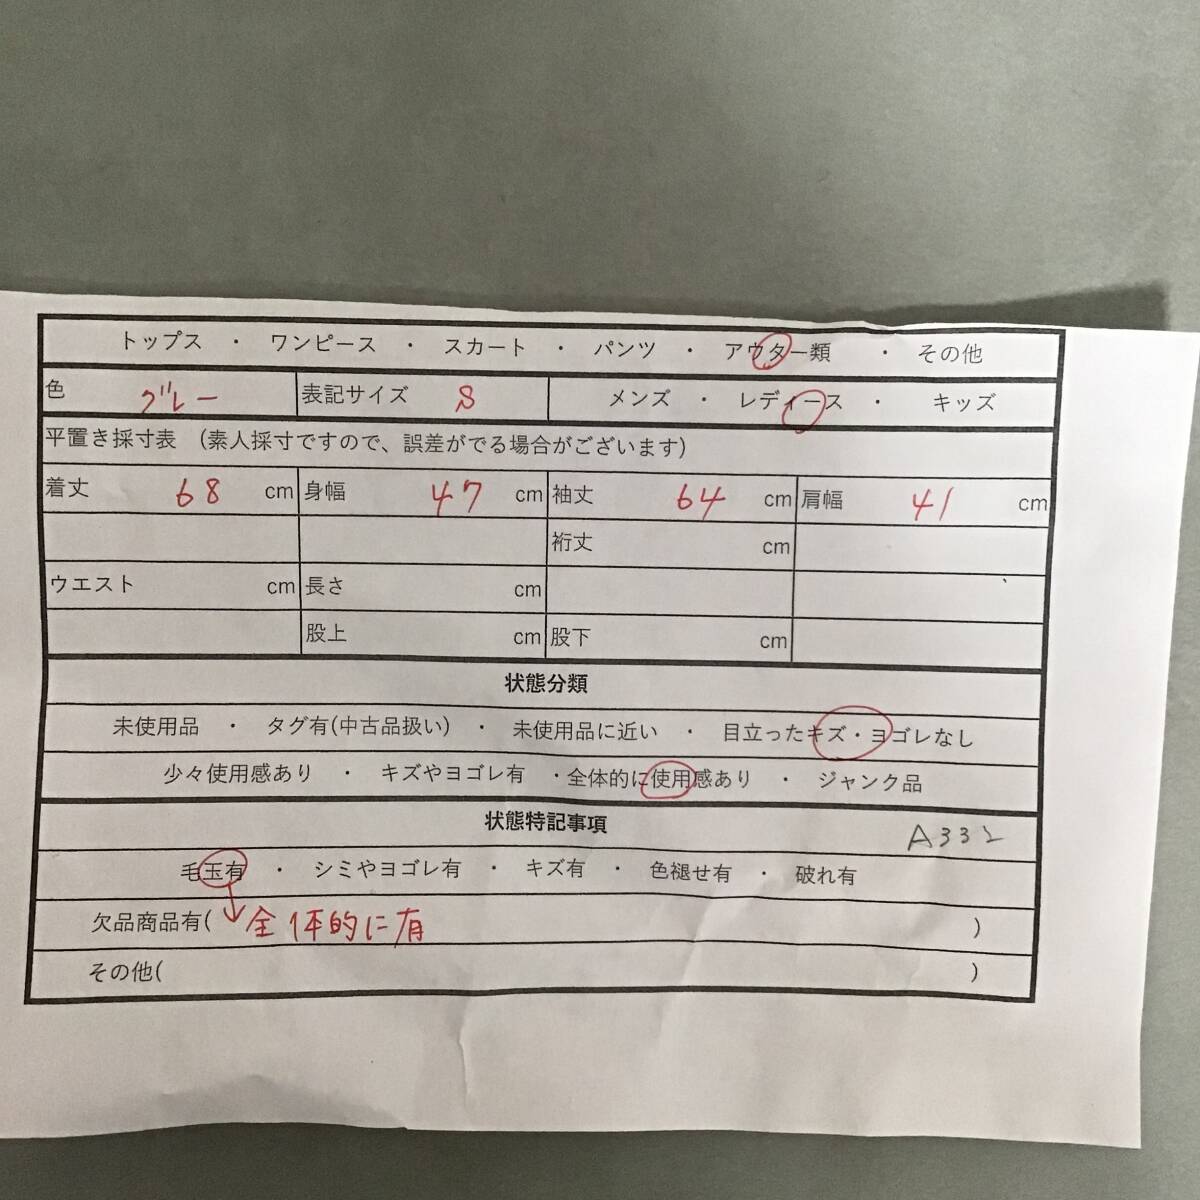 トップス ・ ワンピース ・ スカート ・ パンツ ・ アウター類 ・ その他
色 グレー 表記サイズ S メンズ ・ レディース ・ キッズ
平置き採寸表 (素人採寸ですので、誤差がでる場合がございます)
着丈 68 cm 身幅 47 cm 袖丈 64 cm 肩幅 41 cm
裄丈 cm
ウエスト cm 長さ cm
股上 cm 股下 cm
状態分類
未使用品 ・ タグ有(中古品扱い) ・ 未使用品に近い ・ 目立ったキズ・ヨゴレなし
少々使用感あり ・ キズやヨゴレ有 ・全体的に使用感あり ・ ジャンク品
状態特記事項 A332
毛玉有 ・ シミやヨゴレ有 ・ キズ有 ・ 色褪せ有 ・ 破れ有
欠品商品有( 全体的に有 )
その他( )